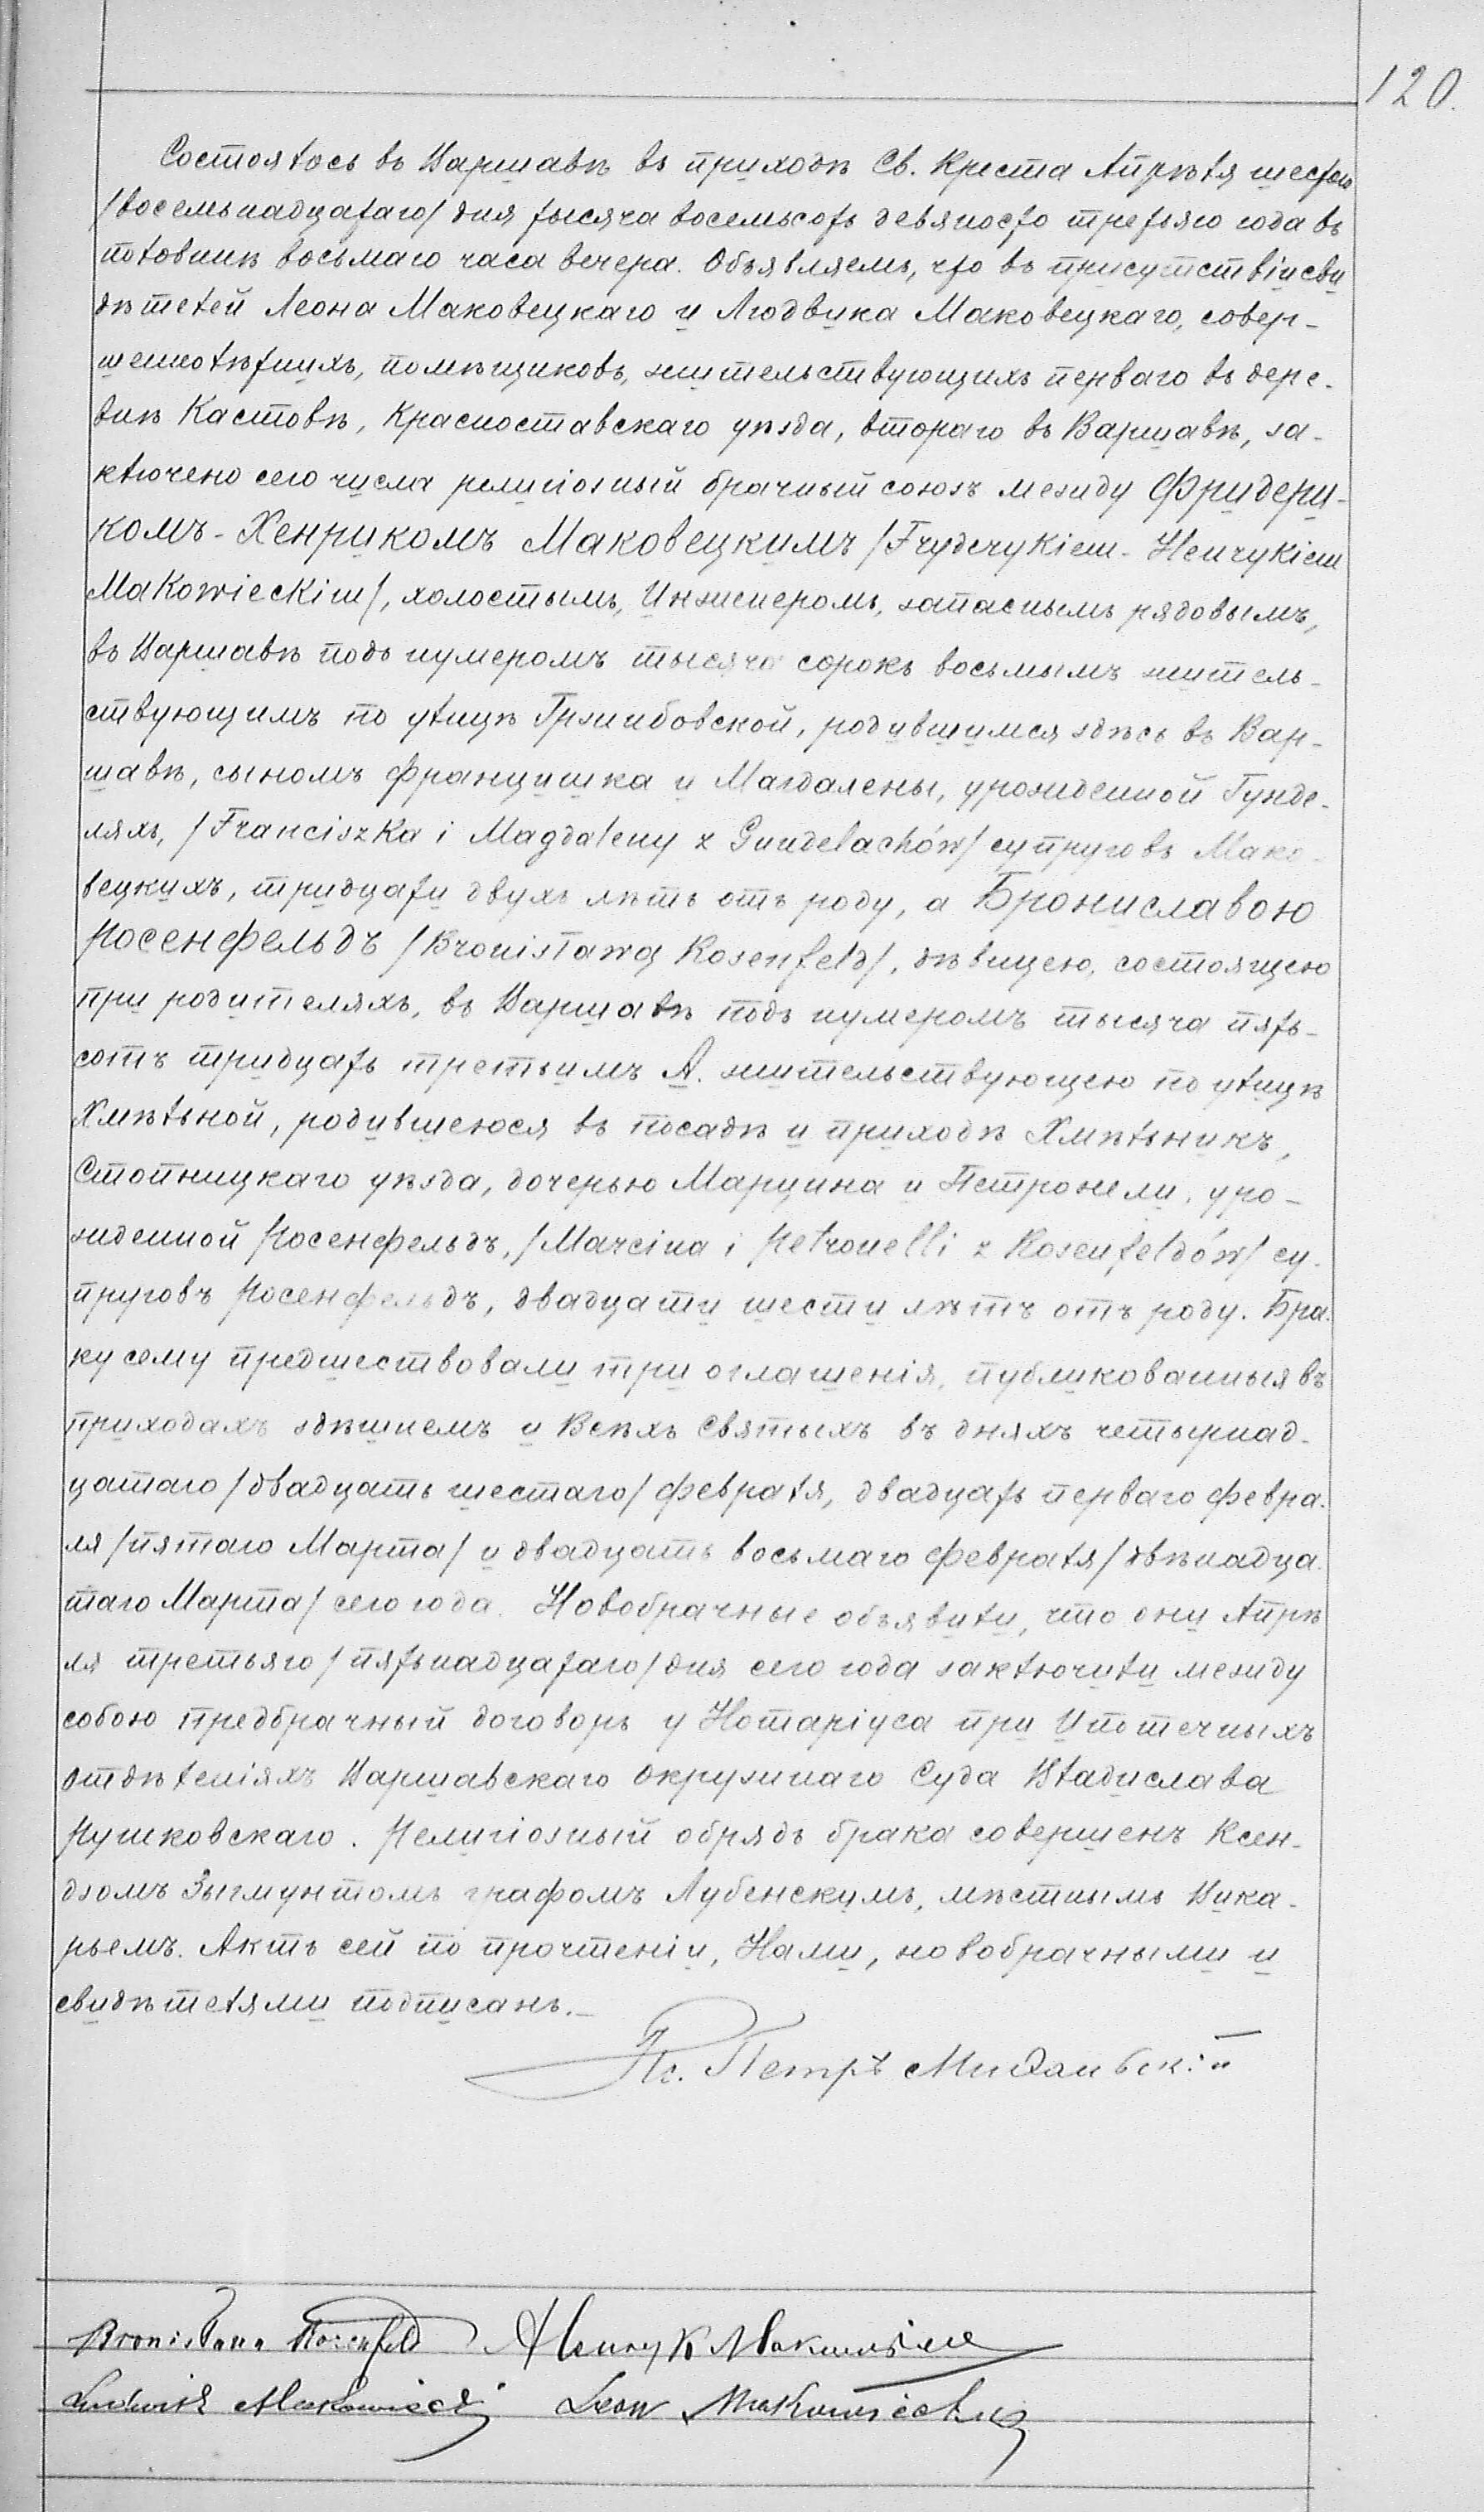 120.
Состоялось въ Варшавѣ въ приходѣ Св. Креста Апрѣля шестого
/восемьнадцатаго/ дня тысяча восемьсотъ девяносто третьяго года въ
половинѣ восьмаго часа вечера. Объявляемъ, что въ присутствіи сви
дѣтелей Леона Маковецкаго и Людвика Маковецкаго, совер-
шеннолѣтнихъ, помѣщиковъ, жительствующихъ перваго въ дере-
внѣ Кастовѣ, Красноставскаго уѣзда, втораго въ Варшавѣ, за-
ключено сего числа религіозный брачный союзъ между Фридери-
комъ-Хенрикомъ Маковецкимъ /Fryderykiem-Henrykiem
Makowieckim/, холостымъ, Инженеромъ, запаснымъ рядовымъ,
въ Варшавѣ подъ нумеромъ тысяча сорокъ восьмымъ житель-
ствующимъ по улицѣ Гржибовской, родившимся здѣсь въ Вар-
шавѣ, сыномъ Францишка и Магдалены, урожденной Гунде-
ляхъ, /Franciszka i Magdaleny z Gundelachów/ супруговъ Мако-
вецкихъ, тридцати двухъ лѣтъ отъ роду, а Брониславою
Росенфельдъ /Bronisławą Rosenfeld/, дѣвицею, состоящею
при родителяхъ, въ Варшавѣ подъ нумеромъ тысяча пять-
сотъ тридцать третьимъ А. жительствующею по улицѣ
Хмѣльной, родившеюся въ посадѣ и приходѣ Хмѣльникъ,
Стопницкаго уѣзда, дочерью Марцина и Петронели, уро-
жденной Росенфельдъ, /Marcina i Petronelli z Rosenfeldów/ су-
пруговъ Росенфельдъ, двадцати шести лѣтъ отъ роду. Бра-
ку сему предшествовали три оглашенія, публикованныя въ
приходахъ здѣшнемъ и Всѣхъ Святыхъ въ дняхъ четырнад-
цатаго /двадцать шестаго/ февраля, двадцать перваго Февра-
ля /пятаго Марта/ и двадцать восьмаго Февраля /двѣнадца-
таго Марта/ сего года. Новобрачные объявили, что они Апрѣ
ля третьяго /пятьнадцатаго/ дня сего года заключили между
собою предбрачный договоръ у Нотаріуса при Ипотечныхъ
Отдѣленіяхъ Варшавскаго Окружнаго Суда Владислава
Рушковскаго. Религіозный обрядъ брака совершенъ Ксен-
дзомъ Зыгмунтомъ графомъ Лубенскимъ, мѣстнымъ Вика-
рьемъ. Актъ сей по прочтеніи, Нами, новобрачными и
свидѣтелями подписанъ.—
Кс. Петръ
Bronisława Rosenfeld Henryk Makowiecki
Ludwik Makowiecki Leon Makowiecki